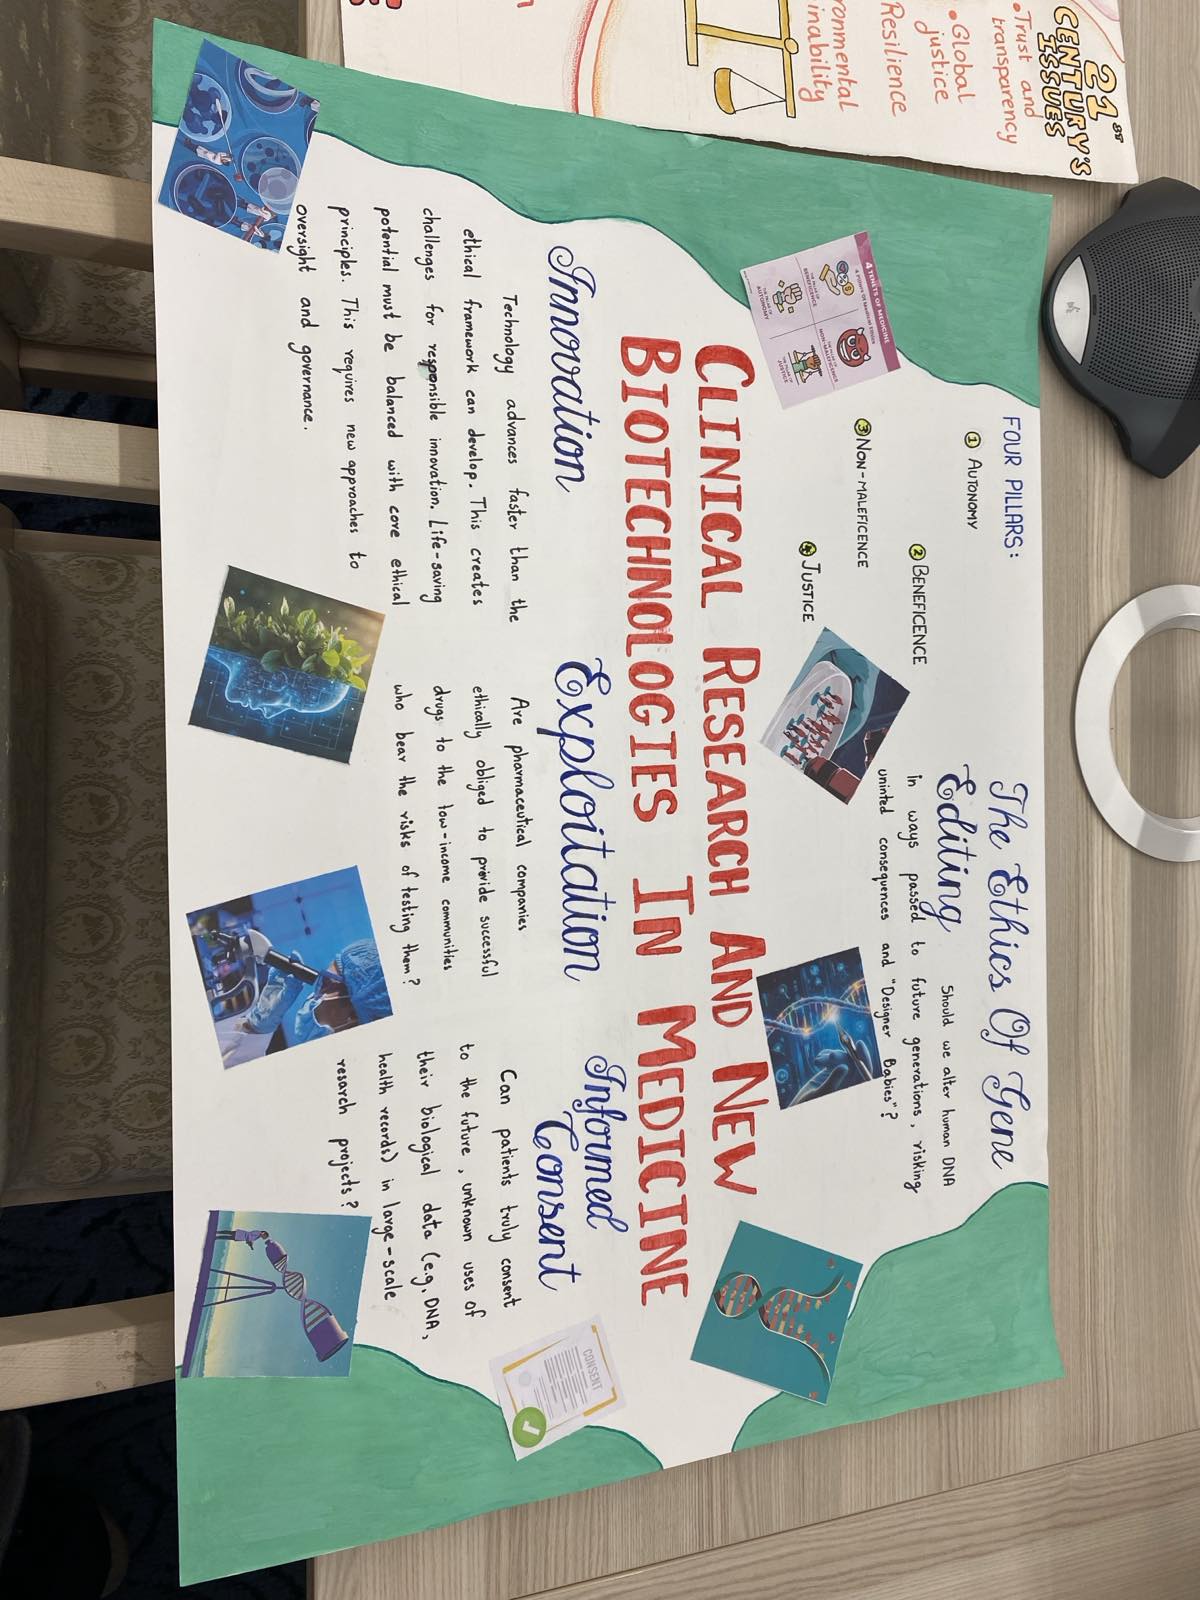 FOUR PILLARS:
1 AUTONOMY
2 BENEFICENCE
3 NON-MALEFICENCE
4 JUSTICE
4 TENETS OF MEDICINE
BENEFICENCE
NON-MALEFICENCE
AUTONOMY
JUSTICE
The Ethics Of Gene
Editing
Should we alter human DNA
in ways passed to future generations, risking
uninted consequences and "Designer Babies"?
CLINICAL RESEARCH AND NEW
BIOTECHNOLOGIES IN MEDICINE
Innovation
Technology advances faster than the
ethical framework can develop. This creates
challenges for responsible innovation. Life-saving
potential must be balanced with core ethical
principles. This requires new approaches to
oversight and governance.
Exploitation
Are pharmaceutical companies
ethically obliged to provide successful
drugs to the low-income communities
who bear the risks of testing them?
Informed
Consent
Can patients truly consent
to the future, unknown uses of
their biological data (e.g. DNA,
health records) in large-scale
research projects?
CONSENT
21ST
CENTURY'S
ISSUES
• Trust and
transparency
• Global
justice
Resilience
ronmental
inability